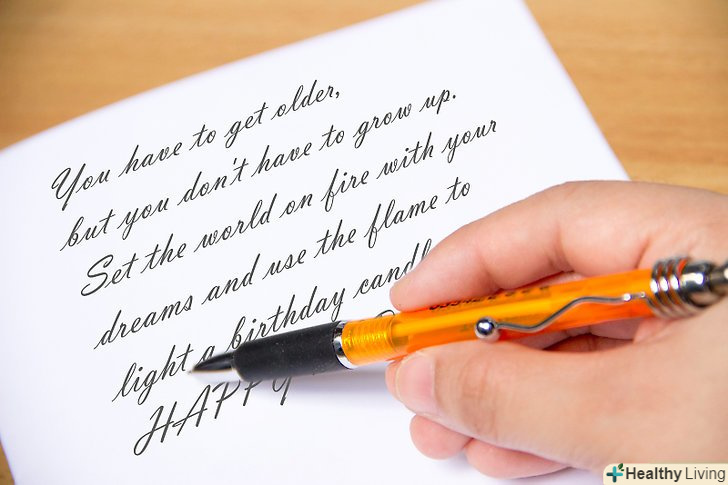 You have to get older,
but you don't have to grow up.
Set the world on fire with your
dreams and use the flame to
light a birthday
HAPPY
Healthy Living